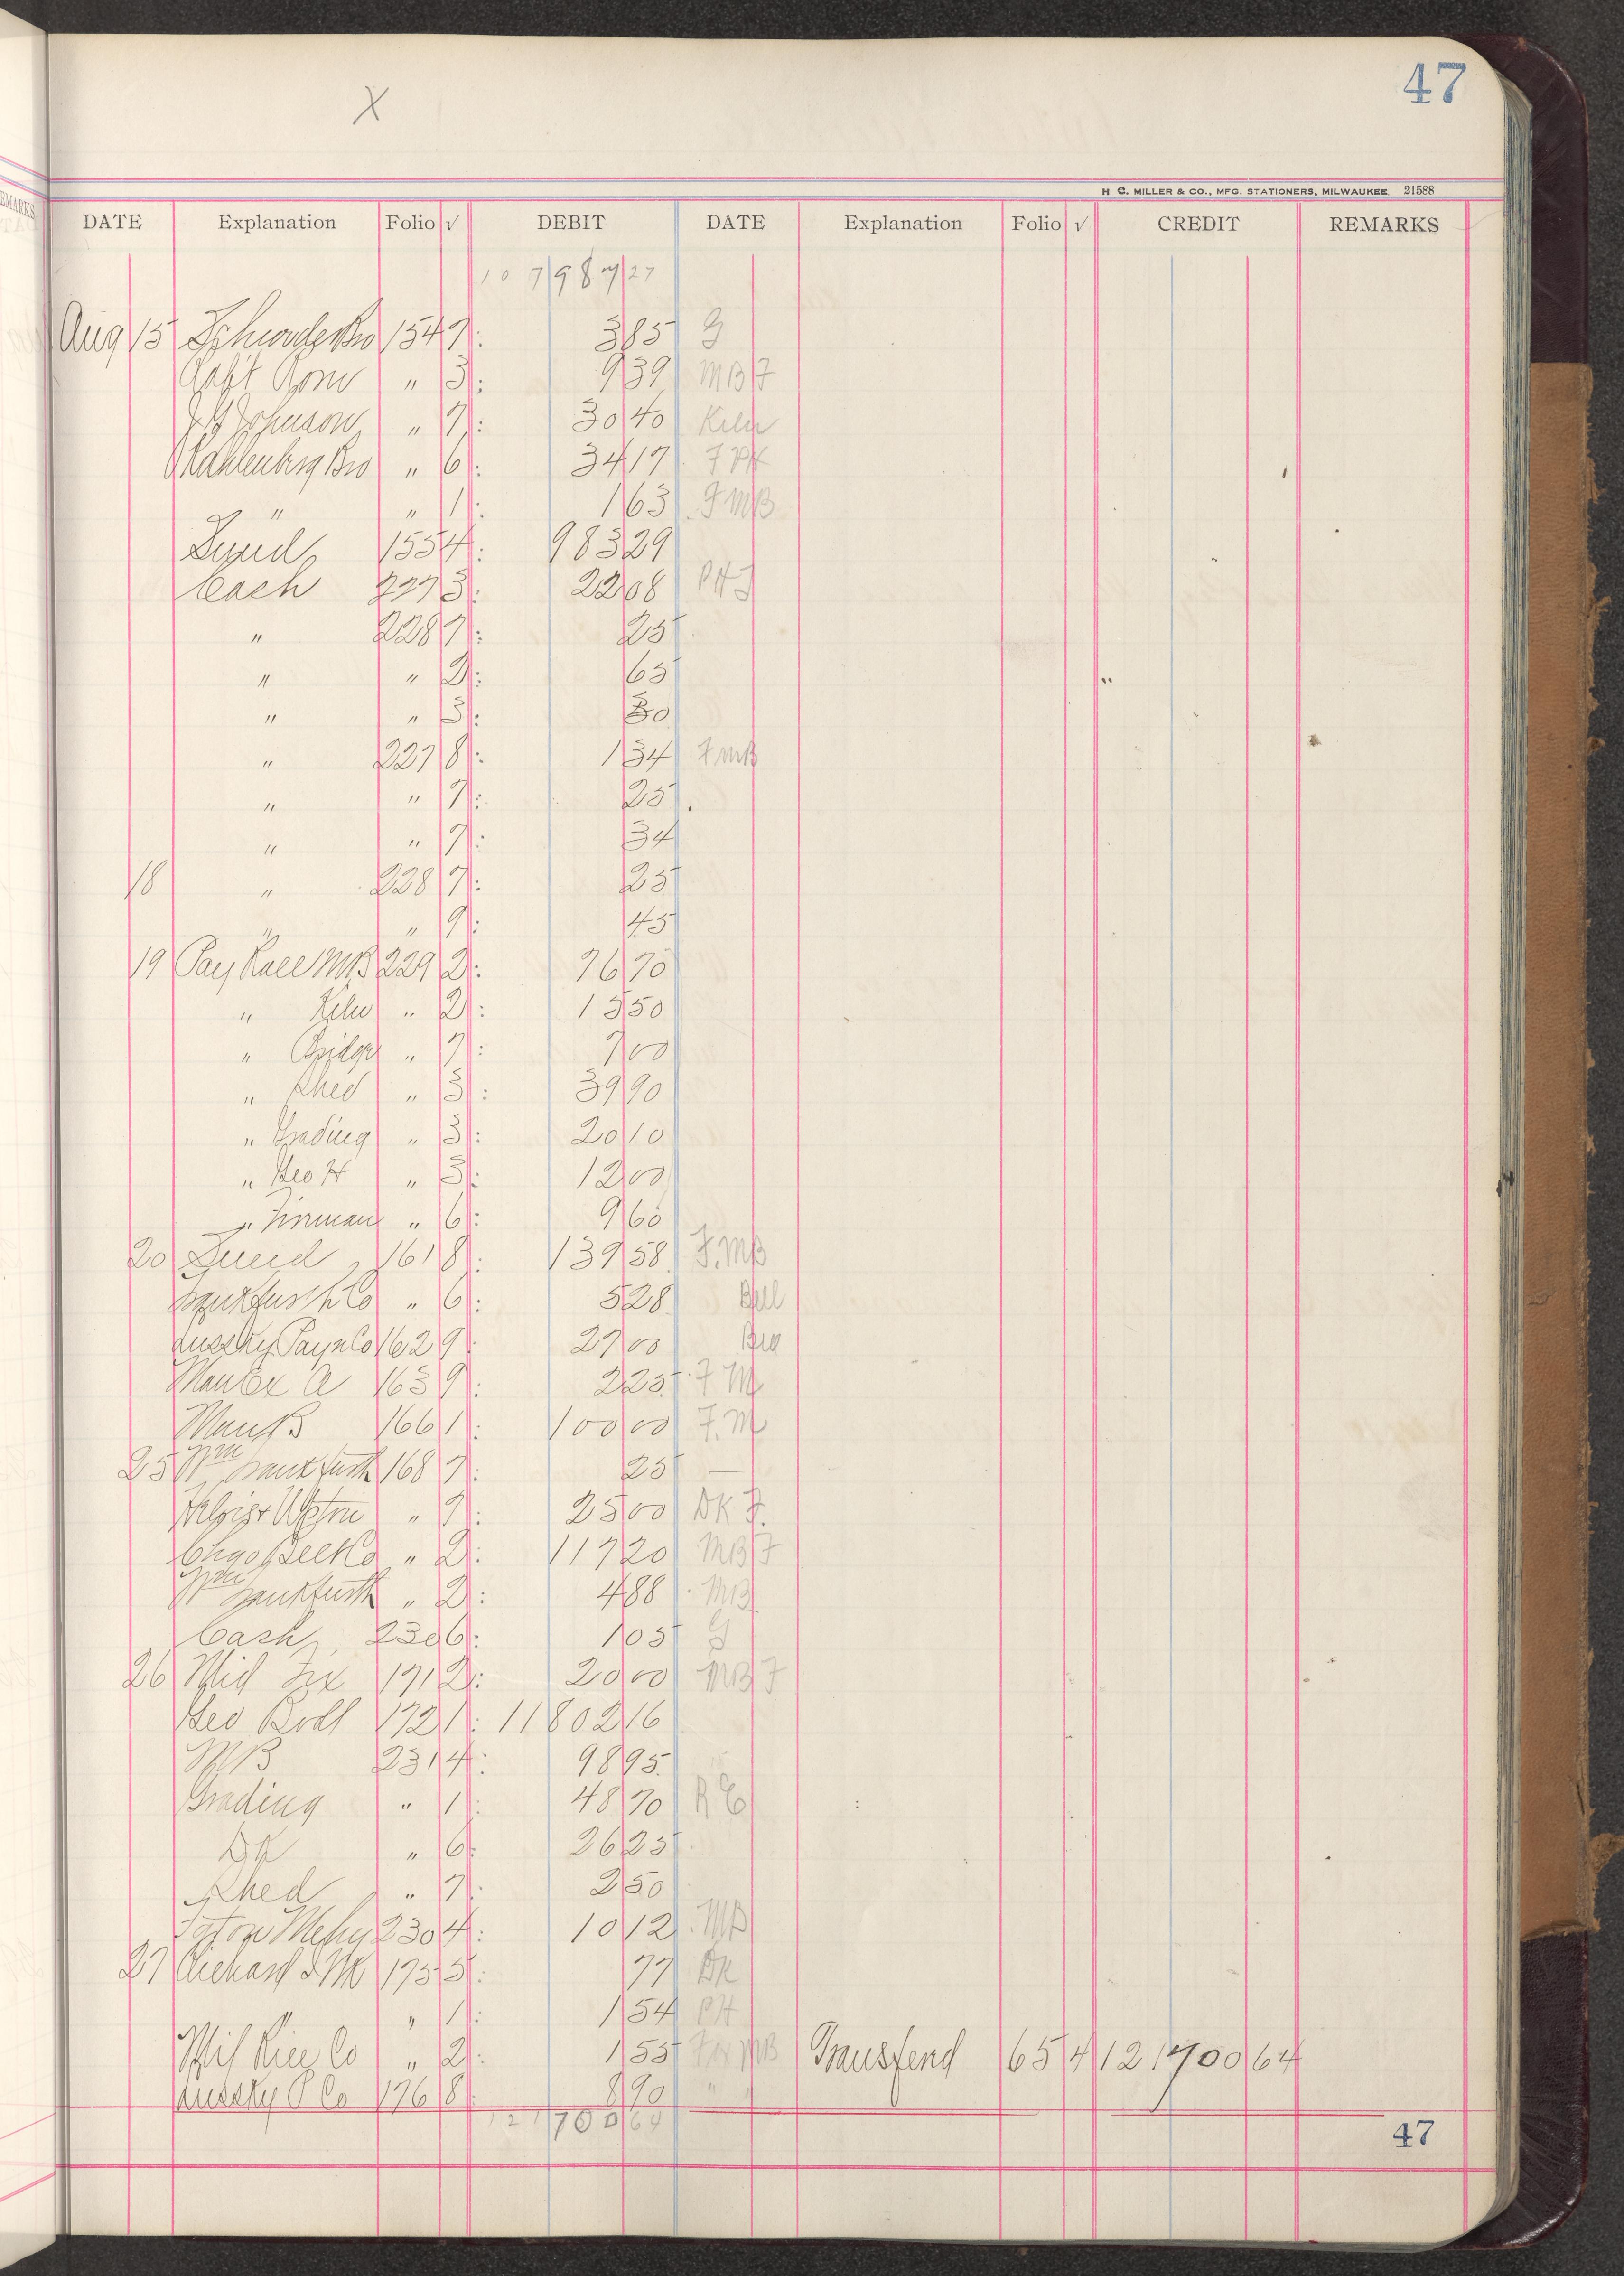 47
X
H C. MILLER & CO., MFG. STATIONERS, MILWAUKEE 21588
DATE Explanation Folio √ DEBIT DATE Explanation Folio √ CREDIT REMARKS
10 7987 27
Aug 15 Schroeder Bro 154 7: 3 85 G
Capt Rohn " 3: 9 39 MB F
Johnson " 7: 30 40 Kiln
Kahlenberg Bro " 6: 34 17 F PH
" " 1: 1 63 F MB
Lund 155 4: 983 29
Cash 227 3: 22 08 PH J
" 228 7: 25
" " 2: 65
" " 3: 30
" 227 8: 1 34 F MB
" " 7: 25
" " 7: 34
18 " 228 7: 25
" " 9: 45
19 Pay Roll MB 229 2: 76 70
" Kiln " 2: 15 50
" Bridge " 7: 7 00
" Shed " 3: 39 90
" Grading " 3: 20 10
" Geo H " 3: 12 00
" Fireman " 6: 9 60
20 Lund 161 8: 139 58 F. MB
Frankfurth Co " 6: 5 28 Bell
Co 162 9: 27 00
A 163 9: 2 25 F M
166 1: 100 00 F. M
25 Wm Frankfurth 168 7: 25 —
" 7: 25 00 DK F.
Chgo Belt Co " 2: 117 20 MB F
Wm Frankfurth " 2: 4 88 MB
Cash 230 6: 1 05 G
26 Mil 171 2: 20 00 MB F
Geo 172 1: 11802 16
MB 231 4: 98 95
Grading " 1: 48 70 R E
DK " 6: 26 25
Shed " 7: 2 50
230 4: 10 12 MB
27 175 5: 77 DK
" 1: 1 54 PH
Mil Co " 2: 1 55 MB Transferd 65 4 121700 64
Co 176 8: 8 90 " "
121 700 64
47